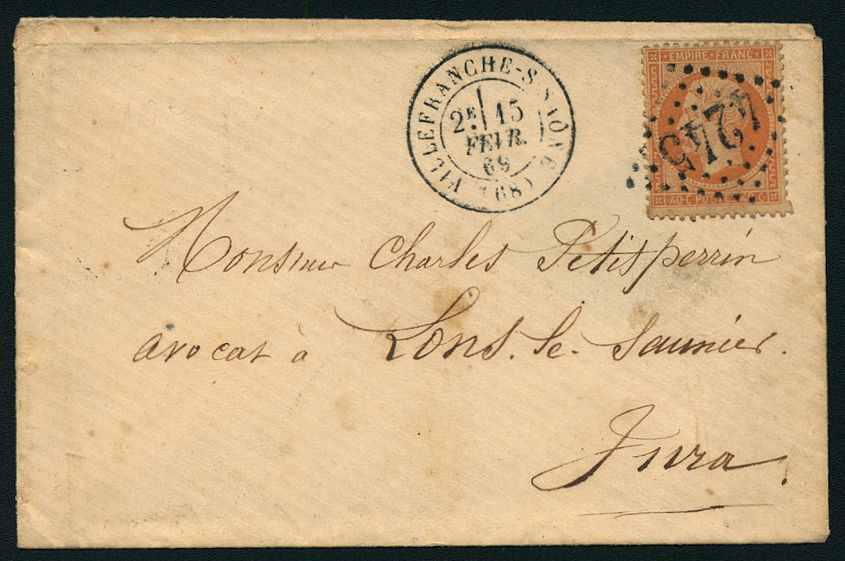 VILLEFRANCHE-S-SAÔNE (68)
2E 15
FEVR.
69
EMPIRE FRANC
4245
40 C POSTES 40 C
Monsieur Charles Petitsperrin
avocat à Lons. le. Saunier.
Jura.